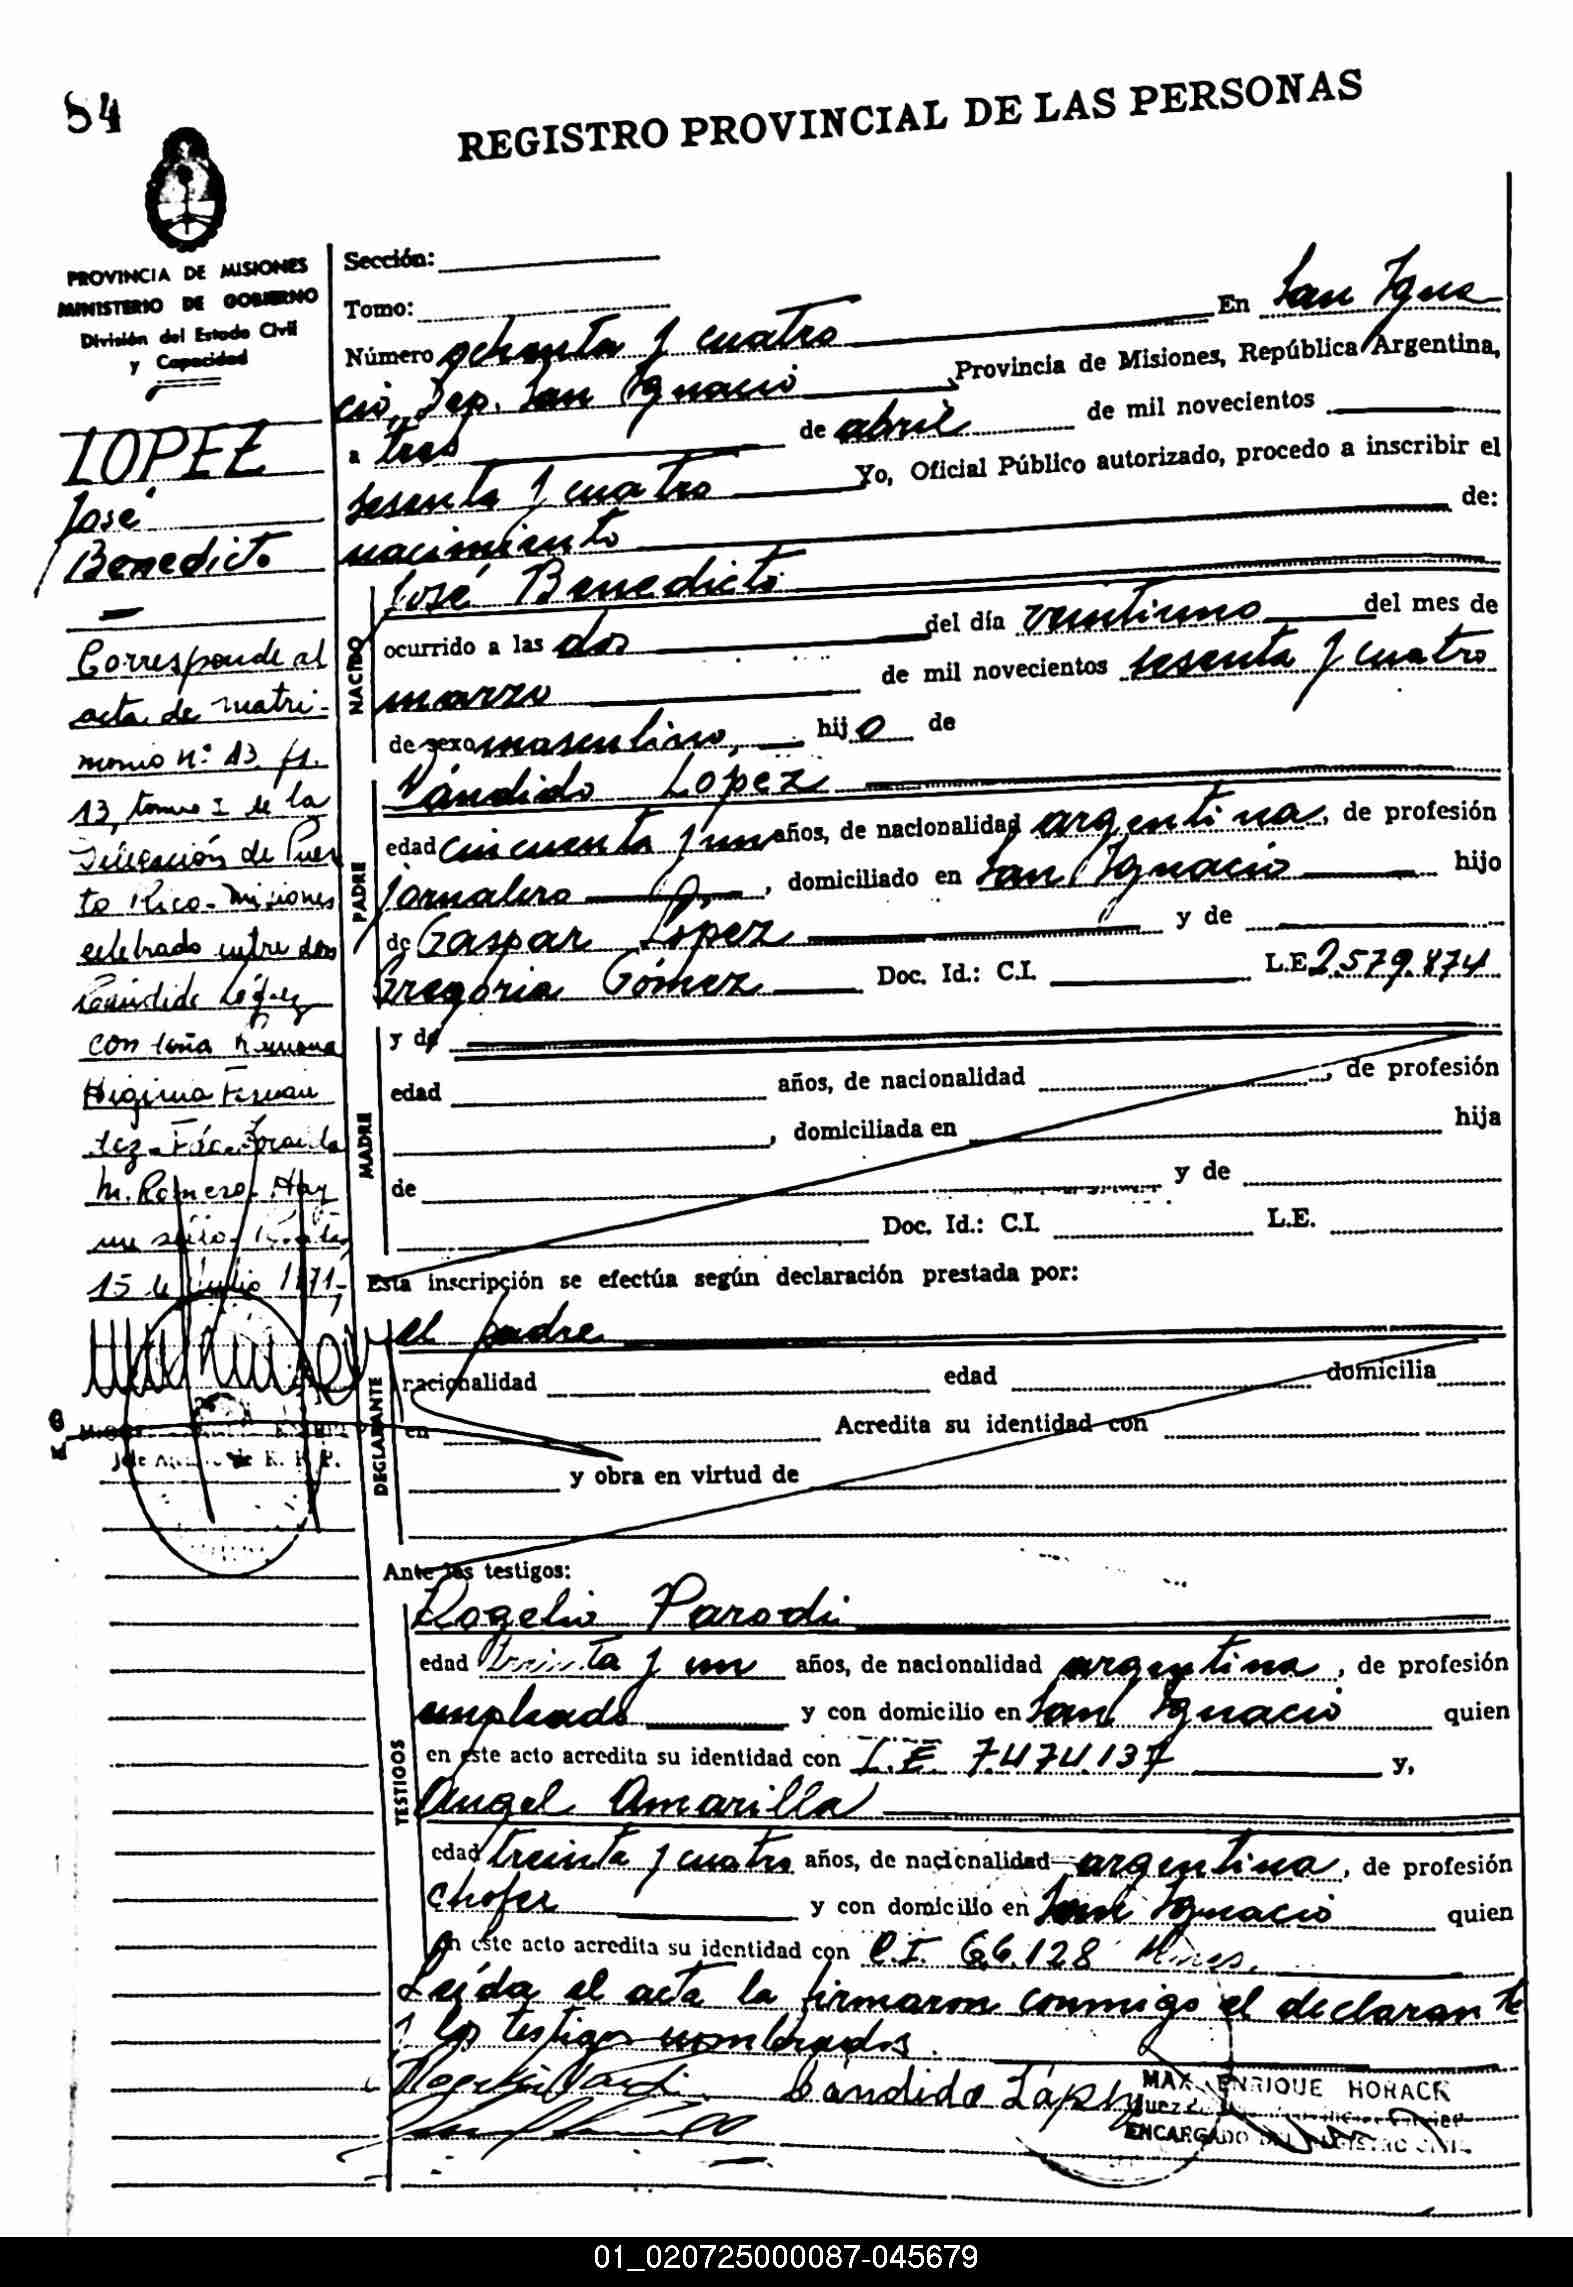 84
REGISTRO PROVINCIAL DE LAS PERSONAS
PROVINCIA DE MISIONES
MINISTERIO DE GOBIERNO
División del Estado Civil
y Capacidad
LOPEZ
José
Benedicto
Corresponde al
acta de matri-
monio n.º 13, fs.
13, tomo I de la
Delegación de Puer
to Rico - Misiones
celebrado entre don
Cándido López
con doña Ramona
Higinia Fernan
dez - Fdo.
M. Romero. Hay
un sello.
15 de Julio 1971-
Jefe R. P. P.
Sección:
Tomo:
Número ochenta y cuatro En San Igna
cio, Dep. San Ignacio Provincia de Misiones, República Argentina,
a tres de abril de mil novecientos
sesenta y cuatro Yo, Oficial Público autorizado, procedo a inscribir el
nacimiento de:
NACIDO
José Benedicto
ocurrido a las dos del día veintiuno del mes de
marzo de mil novecientos sesenta y cuatro
de sexo masculino, hijo de
PADRE
Cándido López
edad cincuenta y un años, de nacionalidad argentina, de profesión
jornalero, domiciliado en San Ignacio hijo
de Gaspar López y de
Gregoria Gómez Doc. Id.: C.I. L.E. 2.579.874
MADRE
y de
edad años, de nacionalidad, de profesión
, domiciliada en hija
de y de
Doc. Id.: C.I. L.E.
Esta inscripción se efectúa según declaración prestada por:
DECLARANTE
el padre
nacionalidad edad domicilia
en Acredita su identidad con
y obra en virtud de
Ante los testigos:
TESTIGOS
Rogelio Parodi
edad treinta y un años, de nacionalidad argentina, de profesión
empleado y con domicilio en San Ignacio quien
en este acto acredita su identidad con L.E. 7.474.137 y,
Angel Amarilla
edad treinta y cuatro años, de nacionalidad argentina, de profesión
chofer y con domicilio en San Ignacio quien
en este acto acredita su identidad con C.I. 66.128 Mnes.
Leída el acta la firmaron conmigo el declarante
y los testigos nombrados.
Cándido López
MAX ENRIQUE HORACK
Juez
ENCARGADO DEL REGISTRO CIVIL
01_020725000087-045679